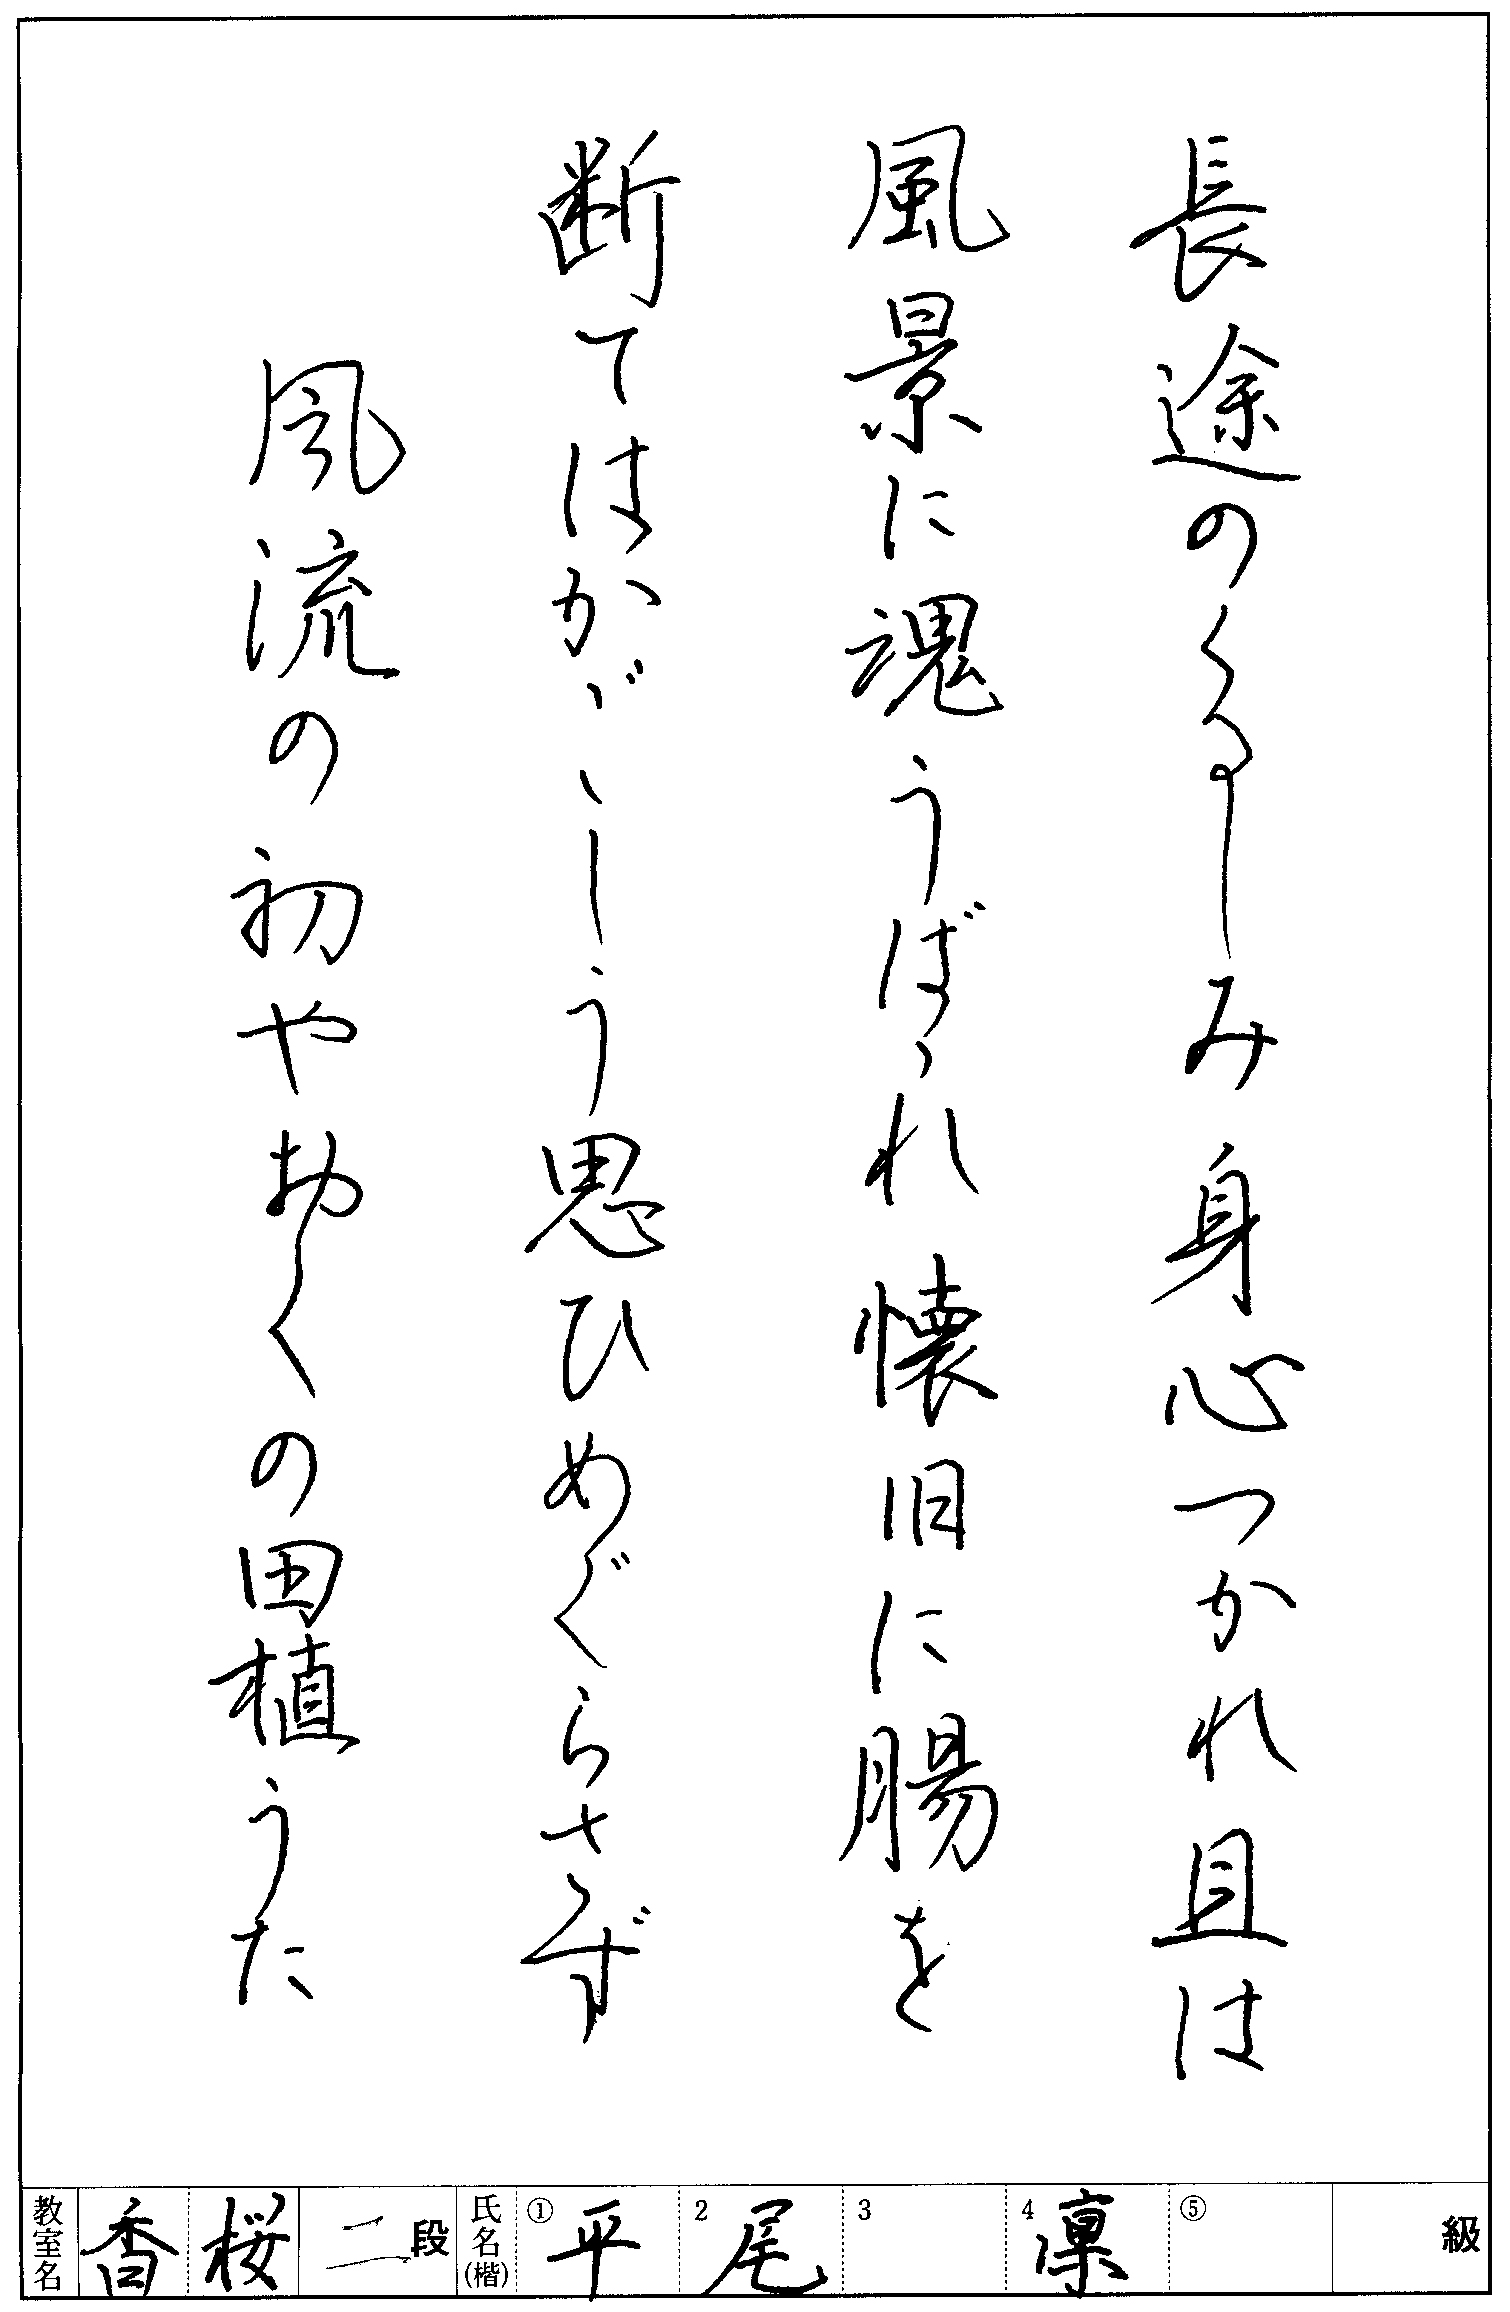 長途のくるしみ身心つかれ且は
風景に魂うばゝれ懐旧に腸を
断てはかゞゝしう思ひめぐらさず
風流の初やおくの田植うた
教室名 香桜 二段 氏名(楷) ①平 2尾 3 4凛 ⑤ 級